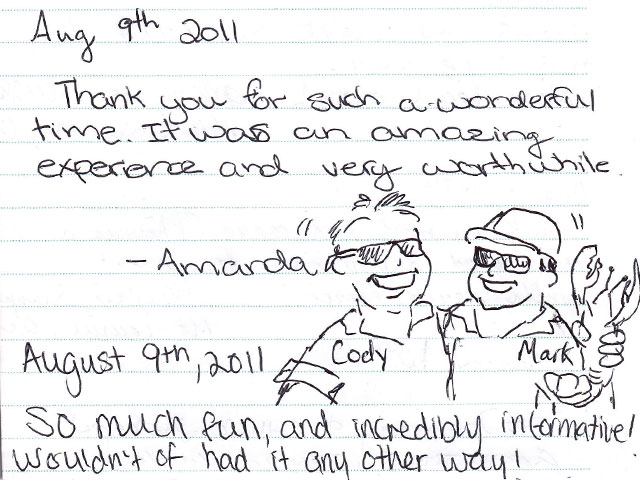 Aug 9th 2011
Thank you for such a wonderful
time. It was an amazing
experience and very worthwhile.
- Amanda
Cody Mark
August 9th, 2011
So much fun, and incredibly informative!
Wouldn't of had it any other way!